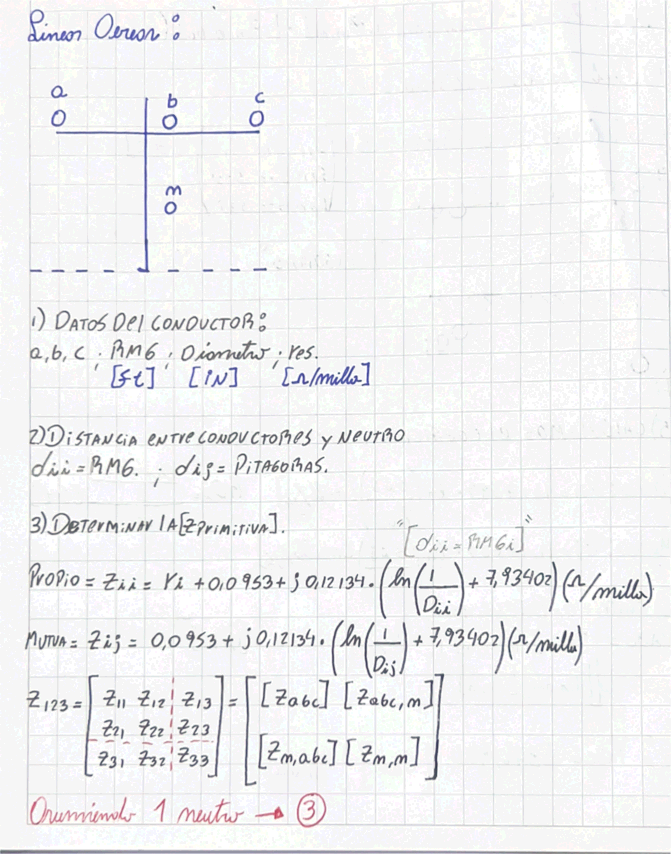 Lineas Aereas:
a b c
m
1) DATOS Del CONDUCTOR:
a, b, c ; RMG ; Diametro ; res.
[ft] [IN] [Ω/milla]
2) DISTANCIA ENTRE CONDUCTORES y NEUTRO
dii = RMG. ; dij = PITAGORAS.
3) DETERMINAR LA [Z PRIMITIVA].
"[dii = RMGi]"
PROPIO = Zii = ri + 0,0953 + j 0,12134 · (ln(1/Dii) + 7,93402) (Ω/milla)
MUTUA = Zij = 0,0953 + j 0,12134 · (ln(1/Dij) + 7,93402) (Ω/milla)
Z123 = [Z11 Z12 Z13] = [[Zabc] [Zabc,m]]
Z21 Z22 Z23
Z31 Z32 Z33 [Zm,abc] [Zm,m]
Asumiendo 1 neutro → 3